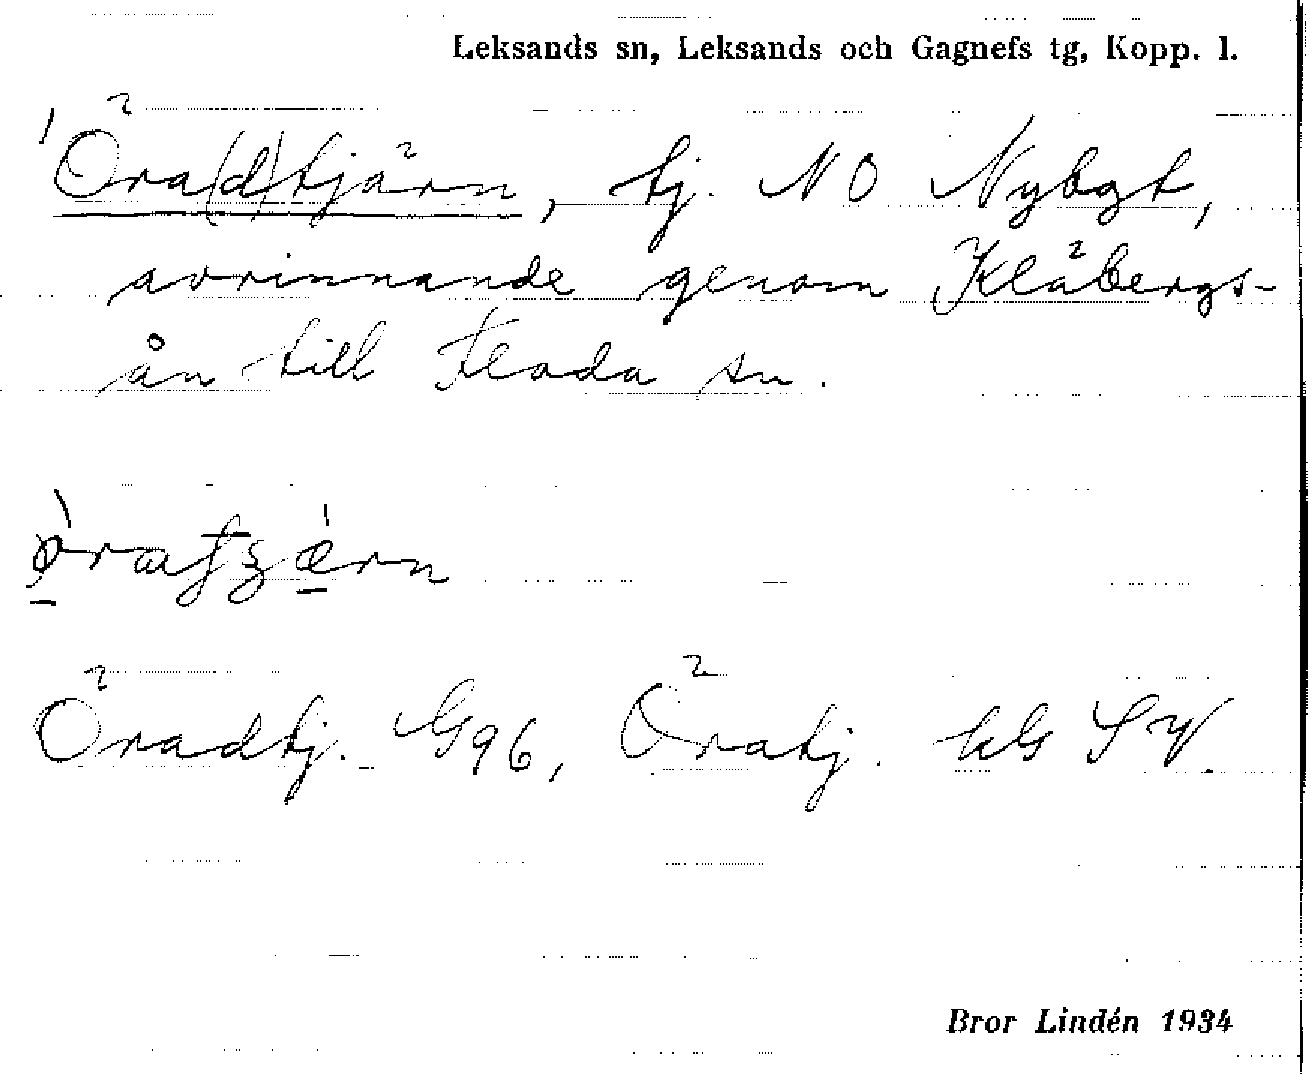 Leksands sn, Leksands och Gagnefs tg, Kopp. l.
Öra(d)tjärn, tj. NO Nybgt,
avrinnande genom Kläbergs-
ån till Floda sn.
Öradtj. G96, Öratj. hG SV.
Bror Lindén 1934